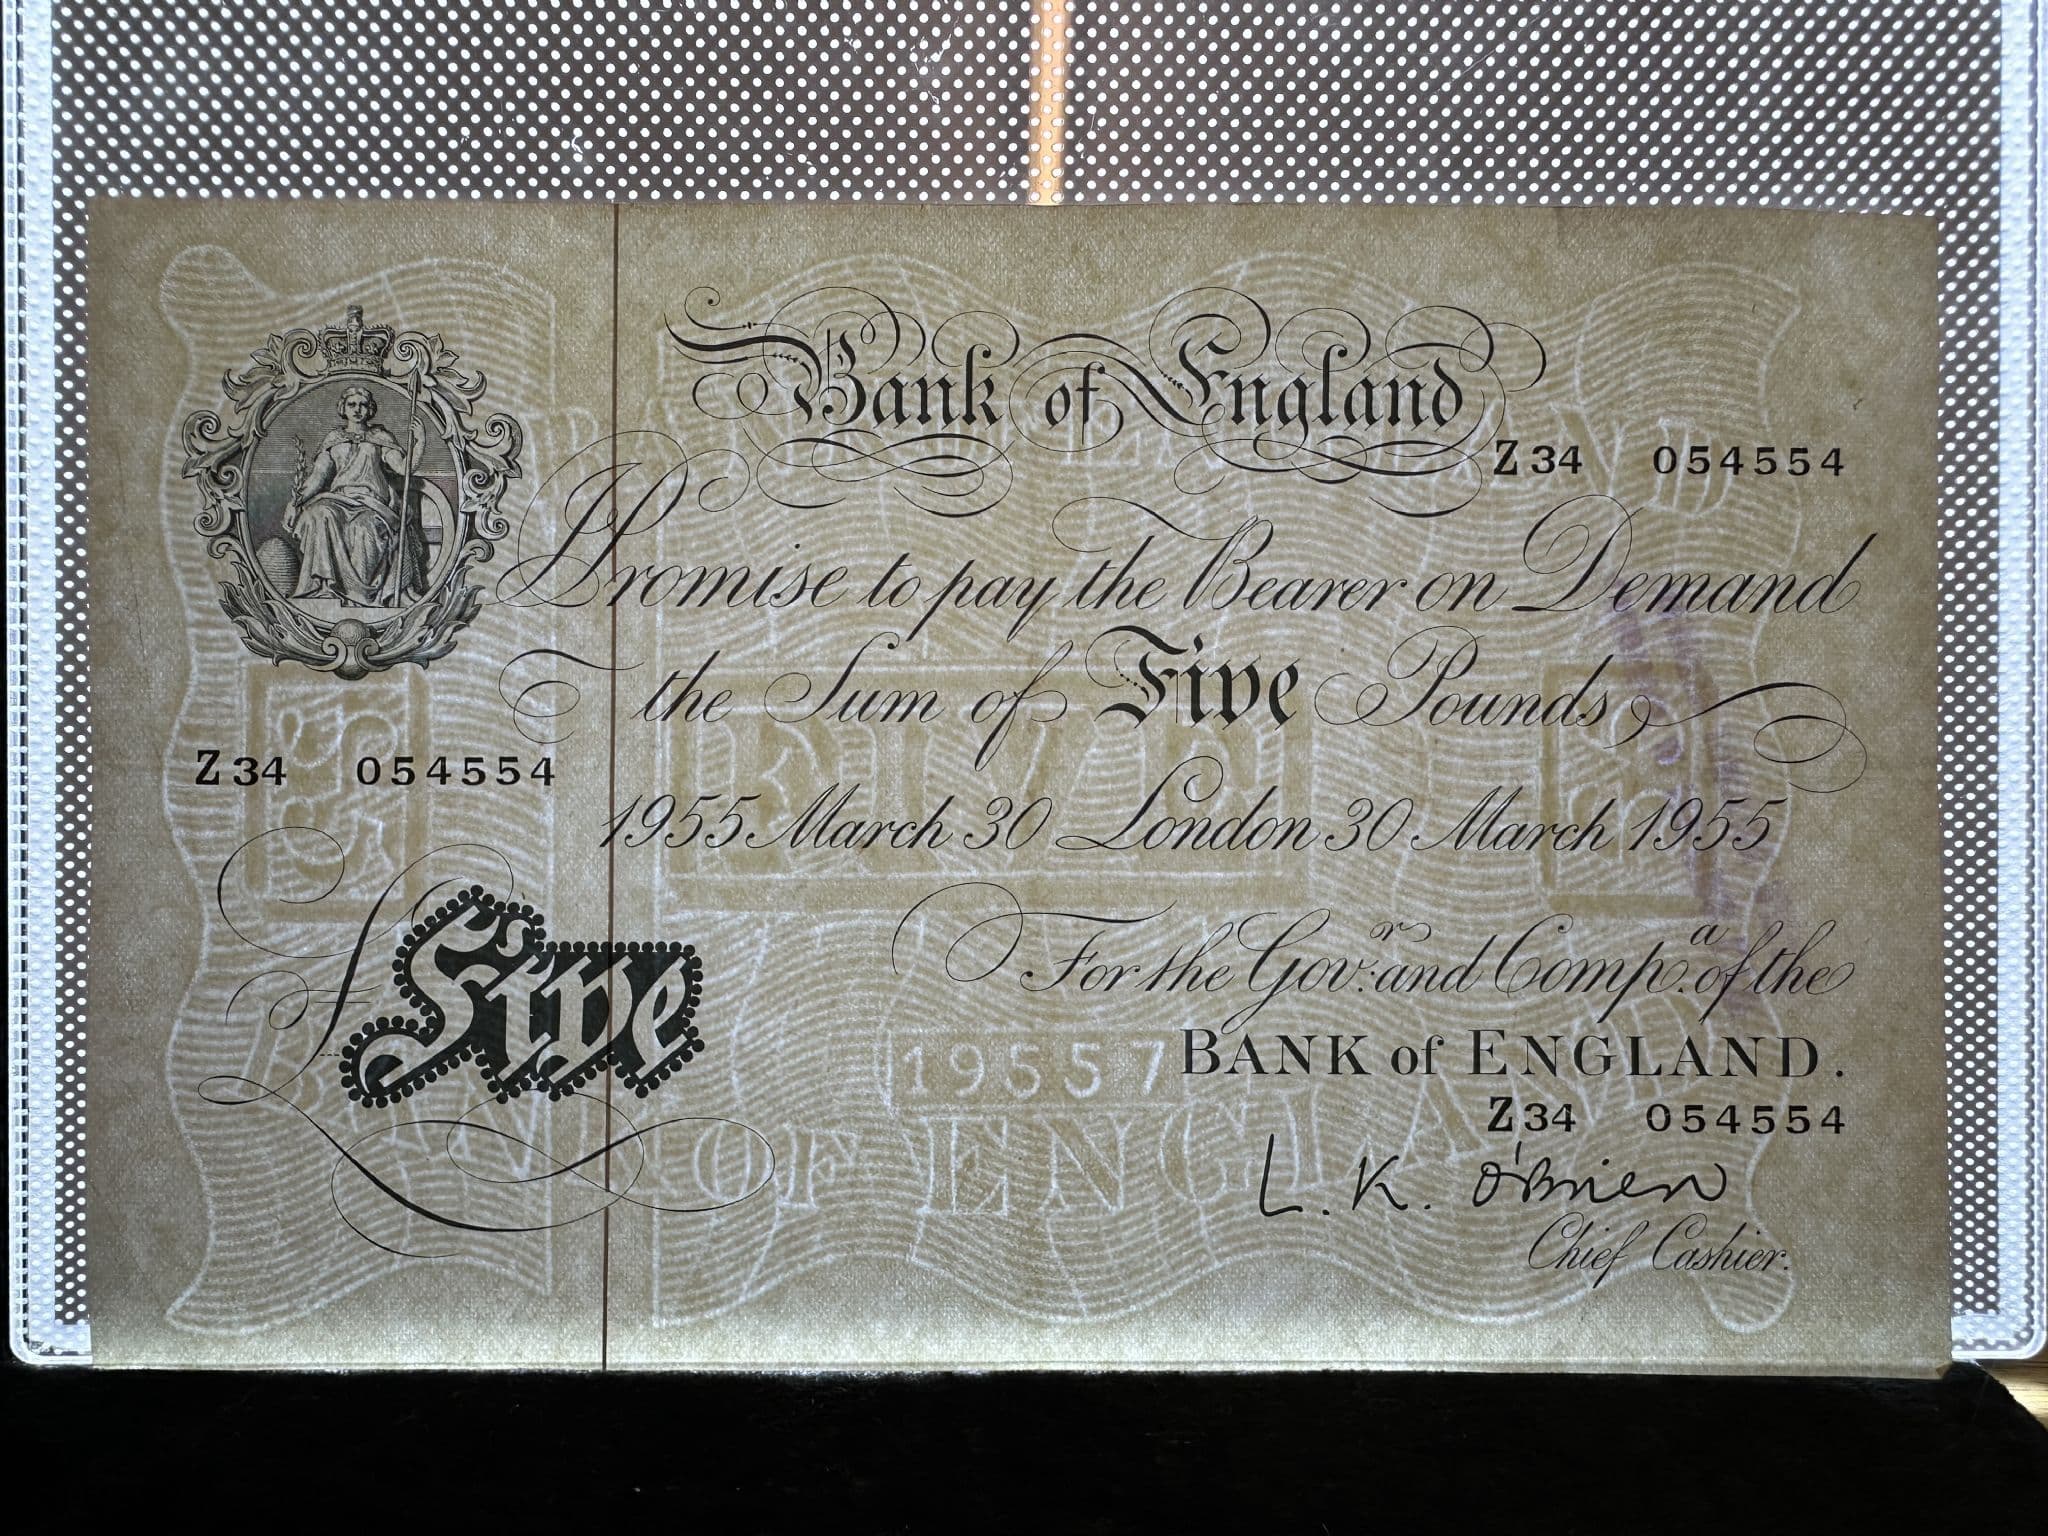 Bank of England
Z 34 054554
I Promise to pay the Bearer on Demand
the Sum of Five Pounds
Z 34 054554
1955 March 30 London 30 March 1955
£ Five
For the Gov.r and Comp.a of the
BANK of ENGLAND.
Z 34 054554
L. K. O'Brien
Chief Cashier.
FIVE
19557
BANK OF ENGLAND